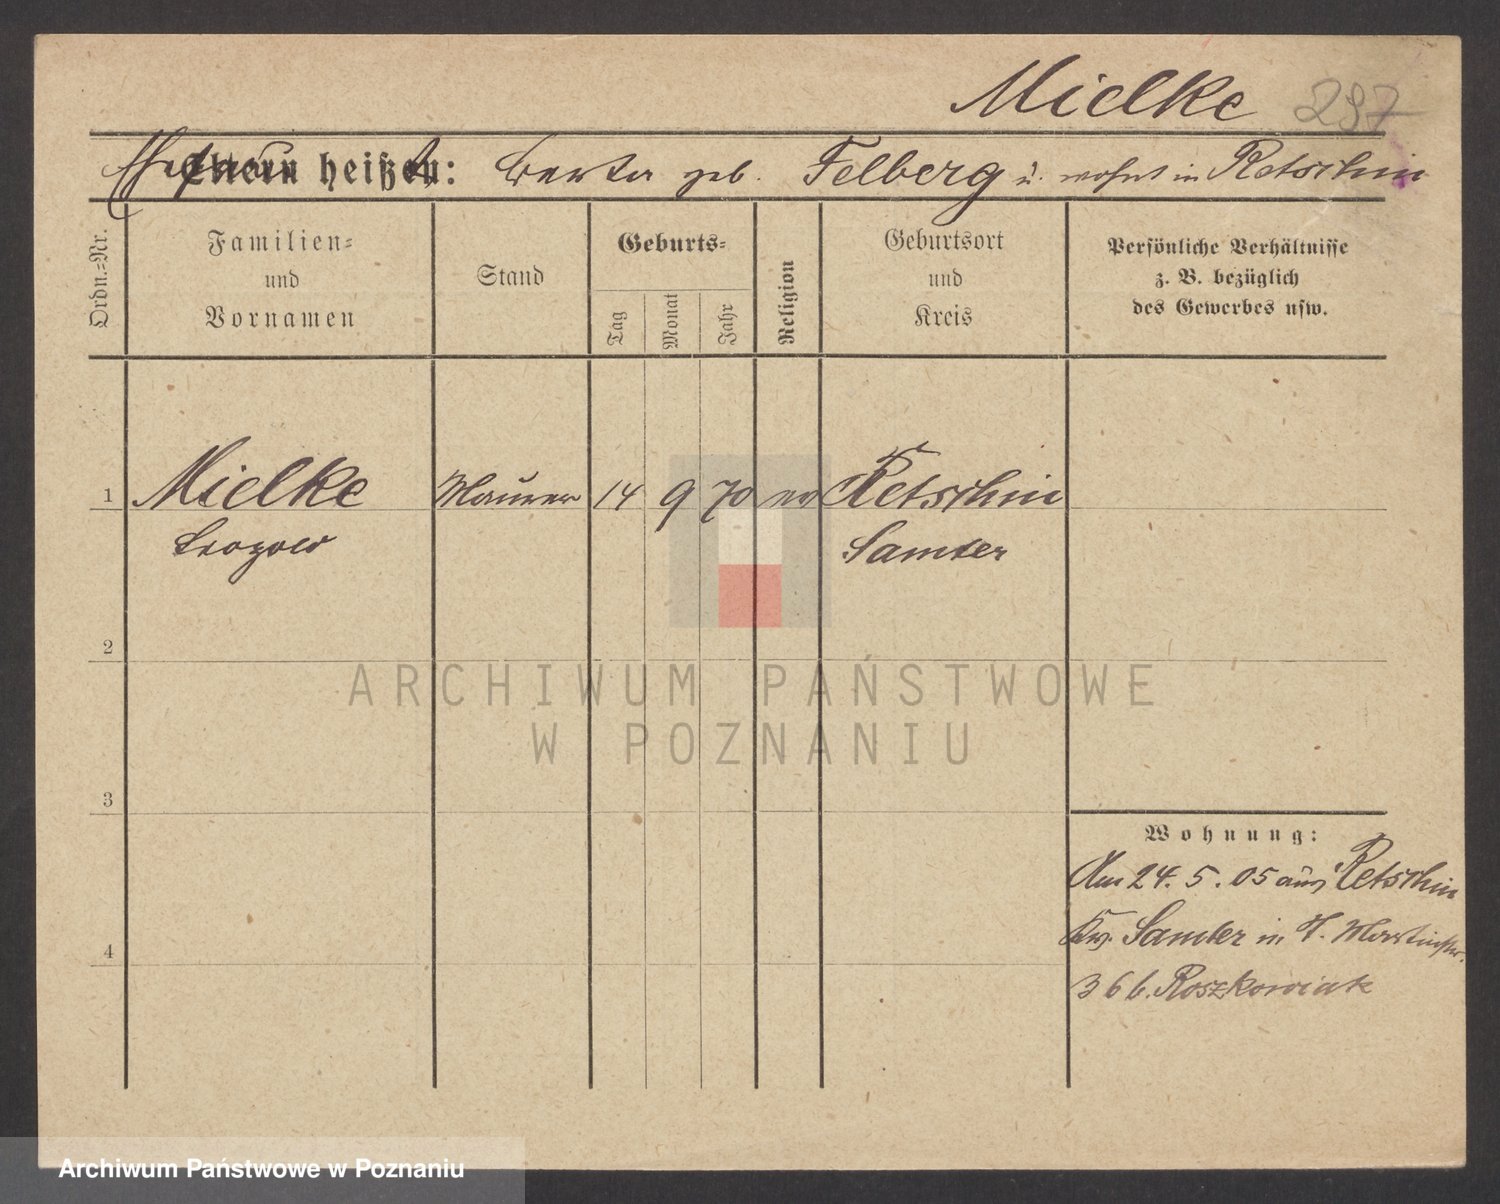 Mielke 297
Eltern heißen: Berta geb. Felberg u. wohnt in Retschin
Ordn.-Nr.
Familien-
und
Vornamen
Stand
Geburts-
Tag
Monat
Jahr
Religion
Geburtsort
und
Kreis
Persönliche Verhältnisse
z. B. bezüglich
des Gewerbes usw.
1 Mielke Maurer 14 9 70 ev Retschin
Leopold Samter
2
3
4
Wohnung:
Am 24. 5. 05 aus Retschin
Kr. Samter in St. Martinstr.
36 b. Roszkowiak
ARCHIWUM PAŃSTWOWE
W POZNANIU
Archiwum Państwowe w Poznaniu